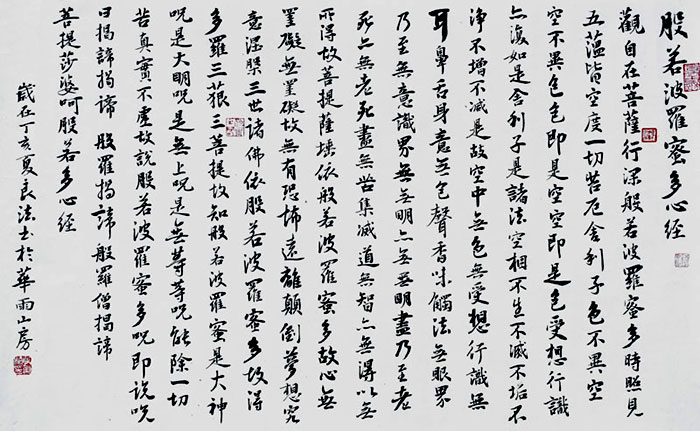 般若波羅蜜多心經
觀自在菩薩行深般若波羅蜜多時照見
五蘊皆空度一切苦厄舍利子色不異空
空不異色色即是空空即是色受想行識
亦復如是舍利子是諸法空相不生不滅不垢不
淨不增不減是故空中無色無受想行識無
耳鼻舌身意無色聲香味觸法無眼界
乃至無意識界無無明亦無無明盡乃至老
死亦無老死盡無苦集滅道無智亦無得以無
所得故菩提薩埵依般若波羅蜜多故心無
罣礙無罣礙故無有恐怖遠離顛倒夢想究
竟涅槃三世諸佛依般若波羅蜜多故得
多羅三藐三菩提故知般若波羅蜜是大神
呪是大明呪是無上呪是無等等呪能除一切
苦真實不虛故說般若波羅蜜多呪即說呪
曰揭諦揭諦 般羅揭諦 般羅僧揭諦
菩提莎婆呵般若多心經
歲在丁亥夏良法書於華雨山房